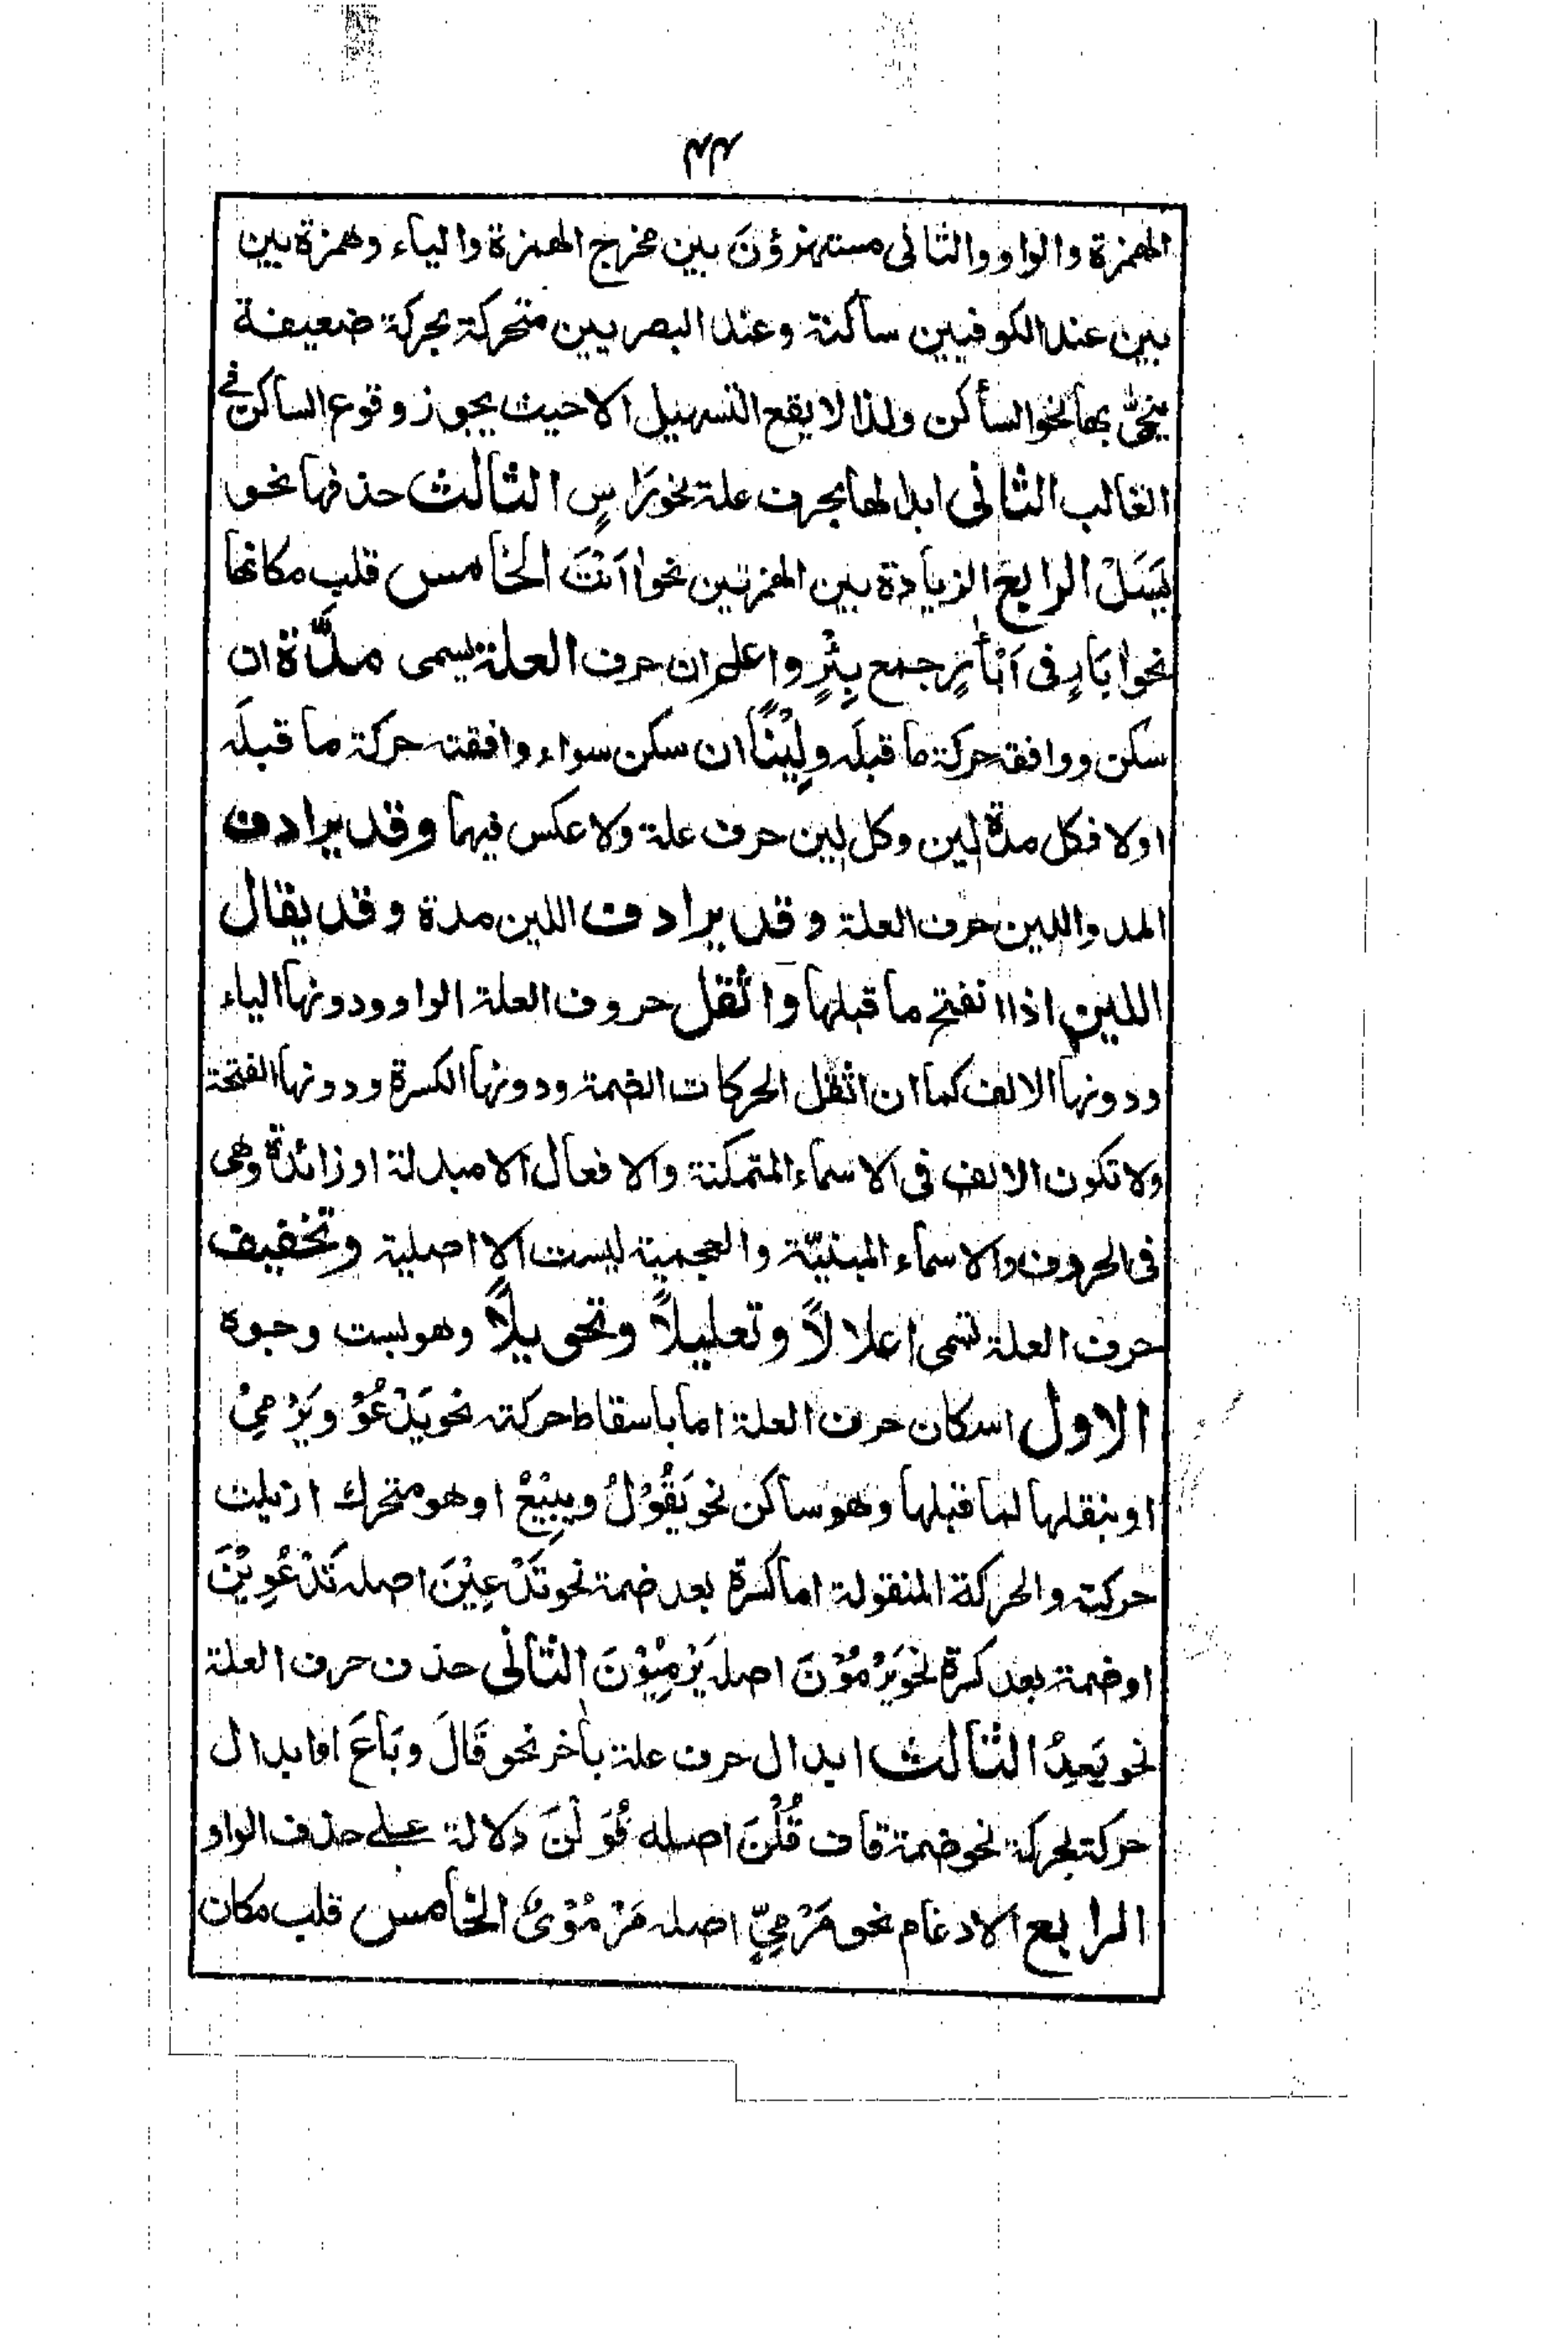 ۴۴
الهمزة والواو والثانى مستهزؤنَ بين مخرج الهمزة والياء وهمزة بين
بين عند الكوفيين ساكنة وعند البصريين متحركة بحركة ضعيفة
ينحىّ بها نحو الساكن ولذا لا يقع التسهيل الا حيث يجوز وقوع الساكن فى
الغالب الثانى ابدالها بحرف علة نحو رَاسٍ الثالث حذفها نحو
يَسَلْ الرابع الزيادة بين الهمزتين نحو ااَنْتَ الخامس قلب مكانها
نحو ابَارٍ فى اَبْأٰرٍ جمع بِئْرٍ واعلم ان حرف العلة يسمى مدَّة ان
سكن ووافقه حركة ما قبله ولِيْنًا ان سكن سواء وافقته حركة ما قبله
اولا فكل مدة لين وكل لين حرف علة ولا عكس فيهما وقد يرادف
المد واللين حرف العلة وقد يرادف اللين مدة وقد يقال
اللين اذا انفتح ما قبلها واثقل حروف العلة الواو ودونها الياء
ودونها الالف كما ان اثقل الحركات الضمة ودونها الكسرة ودونها الفتحة
ولا تكون الالف فى الاسماء المتمكنة والافعال الا مبدلة او زائدة وهى
فى الحروف والاسماء المبنيّة والعجمية ليست الا اصلية وتخفيف
حرف العلة تسمى اعلالاً وتعليلاً وتحويلاً وهو بست وجوه
الاول اسكان حرف العلة اما باسقاط حركته نحو يَدْعُوْ ويَرْمِىْ
او بنقلها لما قبلها وهو ساكن نحو يَقُوْلُ ويَبِيْعُ او هو متحرك ازيلت
حركته والحركة المنقولة اما كسرة بعد ضمة نحو تَدْعِيْنَ اصله تَدْعُوِيْنَ
او ضمة بعد كسرة نحو يَرْمُوْنَ اصله يَرْمِيُوْنَ الثانى حذف حرف العلة
نحو يَعِدُ الثالث ابدال حرف علة بآخر نحو قَالَ وبَاعَ او ابدال
حركته بحركة نحو ضمة قاف قُلْنَ اصله قَوَلْنَ دلالة على حذف الواو
الرابع الادغام نحو مَرْمِىٌّ اصله مَرْمُوْىٌ الخامس قلب مكان